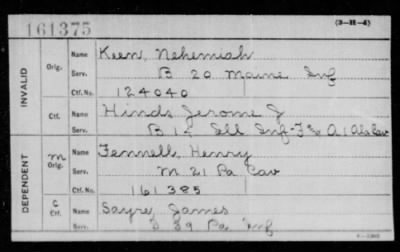 161375
(3-H-4)
INVALID
Orig.
Name Keen, Nehemiah
Serv. B 20 Maine Inf
Ctf. No. 124040
Ctf.
Name Hinds Jerome J
Serv. B 12 Ill Inf - F & A 1 Ala Cav
DEPENDENT
m Orig.
Name Fennell, Henry
Serv. M 21 Pa Cav
Ctf. No. 161385
C Ctf.
Name Sayre, James
Serv. 39 Pa Inf